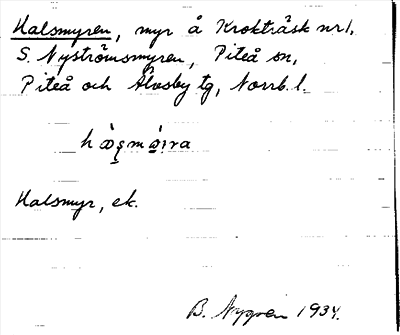 Halsmyren, myr å Krokträsk nr 1,
S. Nyströmsmyren, Piteå sn,
Piteå och Älvsby tg, Norrb. l.
Halsmyr, ek.
B. Nygren 1934.